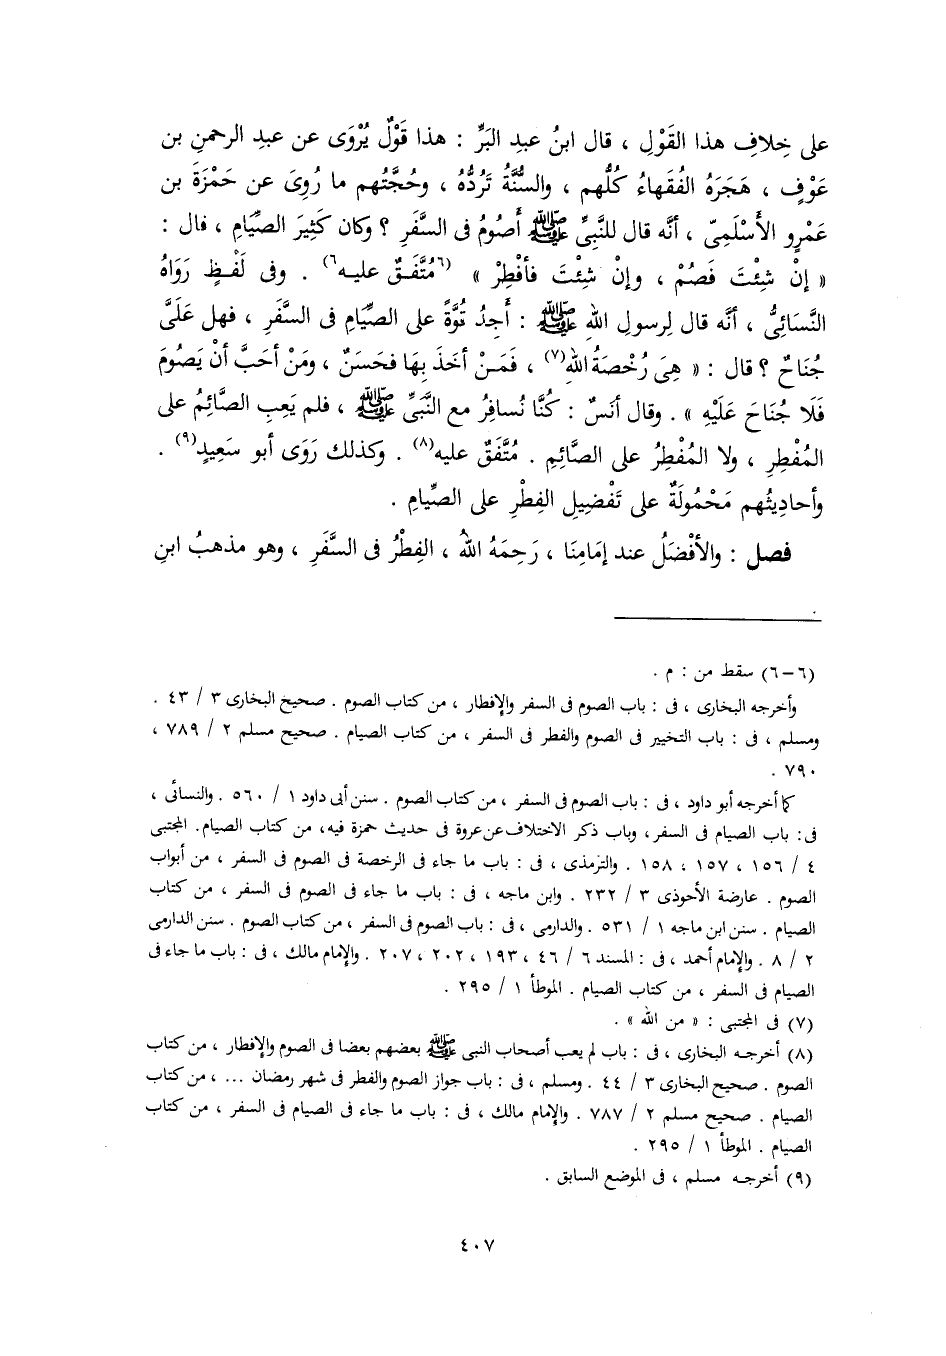 على خِلافِ هذا القَوْلِ ، قال ابنُ عبدِ البَرِّ : هذا قَوْلٌ يُرْوَى عن عبدِ الرحمنِ بن
عَوْفٍ ، هَجَرَهُ الفُقهاءُ كُلُّهم ، والسُّنَّةُ تَرُدُّهُ ، وحُجَّتُهم ما رُوِىَ عن حَمْزَةَ بن
عَمْرٍو الأَسْلَمِىّ ، أنَّه قال للنَّبِىِّ ﷺ أصُومُ فى السَّفَرِ ؟ وكان كَثِيرَ الصِّيَامِ ، فال :
« إنْ شِئْتَ فَصُمْ ، وإنْ شِئْتَ فأفْطِرْ » (٦مُتَّفَقٌ عليه٦) . وفى لَفْظٍ رَوَاهُ
النَّسَائِىُّ ، أنَّه قال لِرسولِ اللهِ ﷺ : أجِدُ قُوَّةً على الصِّيَامِ فى السَّفَرِ ، فهل عَلَىَّ
جُنَاحٌ ؟ قال : « هِىَ رُخْصَةُ اللهِ(٧) ، فَمَنْ أخَذَ بِهَا فحَسَنٌ ، ومَنْ أحَبَّ أنْ يَصُومَ
فَلَا جُنَاحَ عَلَيْهِ » . وقال أنَسٌ : كُنَّا نُسافِرُ مع النَّبِىِّ ﷺ ، فلم يَعِبِ الصَّائِمُ على
المُفْطِرِ ، ولا المُفْطِرُ على الصَّائِمِ . مُتَّفَقٌ عليه(٨) . وكذلك رَوَى أبو سَعِيدٍ(٩) .
وأحادِيثُهم مَحْمُولَةٌ على تَفْضِيلِ الفِطْرِ على الصِّيامِ .
فصل : والأفْضَلُ عند إمَامِنَا ، رَحِمَهُ اللهُ ، الفِطْرُ فى السَّفَرِ ، وهو مذهبُ ابنِ
(٦-٦) سقط من : م .
وأخرجه البخارى ، فى : باب الصوم فى السفر والإفطار ، من كتاب الصوم . صحيح البخارى ٣ / ٤٣ .
ومسلم ، فى : باب التخيير فى الصوم والفطر فى السفر ، من كتاب الصيام . صحيح مسلم ٢ / ٧٨٩ ،
٧٩٠ .
كما أخرجه أبو داود ، فى : باب الصوم فى السفر ، من كتاب الصوم . سنن أبى داود ١ / ٥٦٠ . والنسائى ،
فى : باب الصيام فى السفر ، وباب ذكر الاختلاف عن عروة فى حديث حمزة فيه، من كتاب الصيام. المجتبى
٤ / ١٥٦ ، ١٥٧ ، ١٥٨ . والترمذى ، فى : باب ما جاء فى الرخصة فى الصوم فى السفر ، من أبواب
الصوم . عارضة الأحوذى ٣ / ٢٣٢ . وابن ماجه ، فى : باب ما جاء فى الصوم فى السفر ، من كتاب
الصيام . سنن ابن ماجه ١ / ٥٣١ . والدارمى ، فى : باب الصوم فى السفر ، من كتاب الصوم . سنن الدارمى
٢ / ٨ . والإمام أحمد ، فى : المسند ٦ / ٤٦ ، ١٩٣ ، ٢٠٢ ، ٢٠٧ . والإمام مالك ، فى : باب ما جاء فى
الصيام فى السفر ، من كتاب الصيام . الموطأ ١ / ٢٩٥ .
(٧) فى المجتبى : « من الله » .
(٨) أخرجه البخارى ، فى : باب لم يعب أصحاب النبى ﷺ بعضهم بعضا فى الصوم والإفطار ، من كتاب
الصوم . صحيح البخارى ٣ / ٤٤ . ومسلم ، فى : باب جواز الصوم والفطر فى شهر رمضان ... ، من كتاب
الصيام . صحيح مسلم ٢ / ٧٨٧ . والإمام مالك ، فى : باب ما جاء فى الصيام فى السفر ، من كتاب
الصيام . الموطأ ١ / ٢٩٥ .
(٩) أخرجه مسلم ، فى الموضع السابق .
٤٠٧